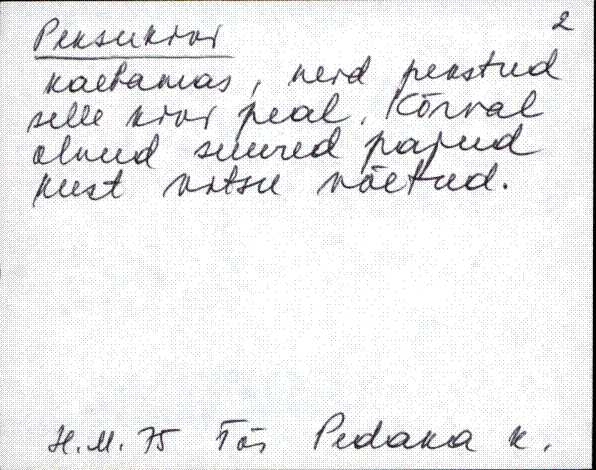 2
Peksukivi
kaebamas, neid pekstud
selle kivi peal. Kõrval
olnud suured pajud
kust vitsu võetud.
H.M. 75 Tõs Pedaka k.